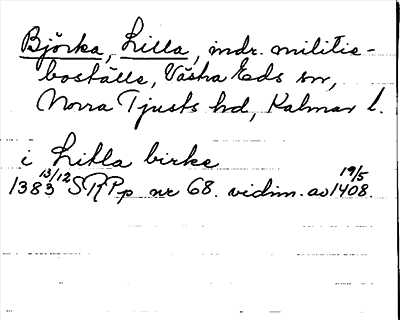 Björka, Lilla, mdr. militie-
boställe, Västra Eds sn,
Norra Tjusts hd, Kalmar l.
i Litla birke
1383 13/12 SRPp nr 68. vidim. av 1408 19/5.